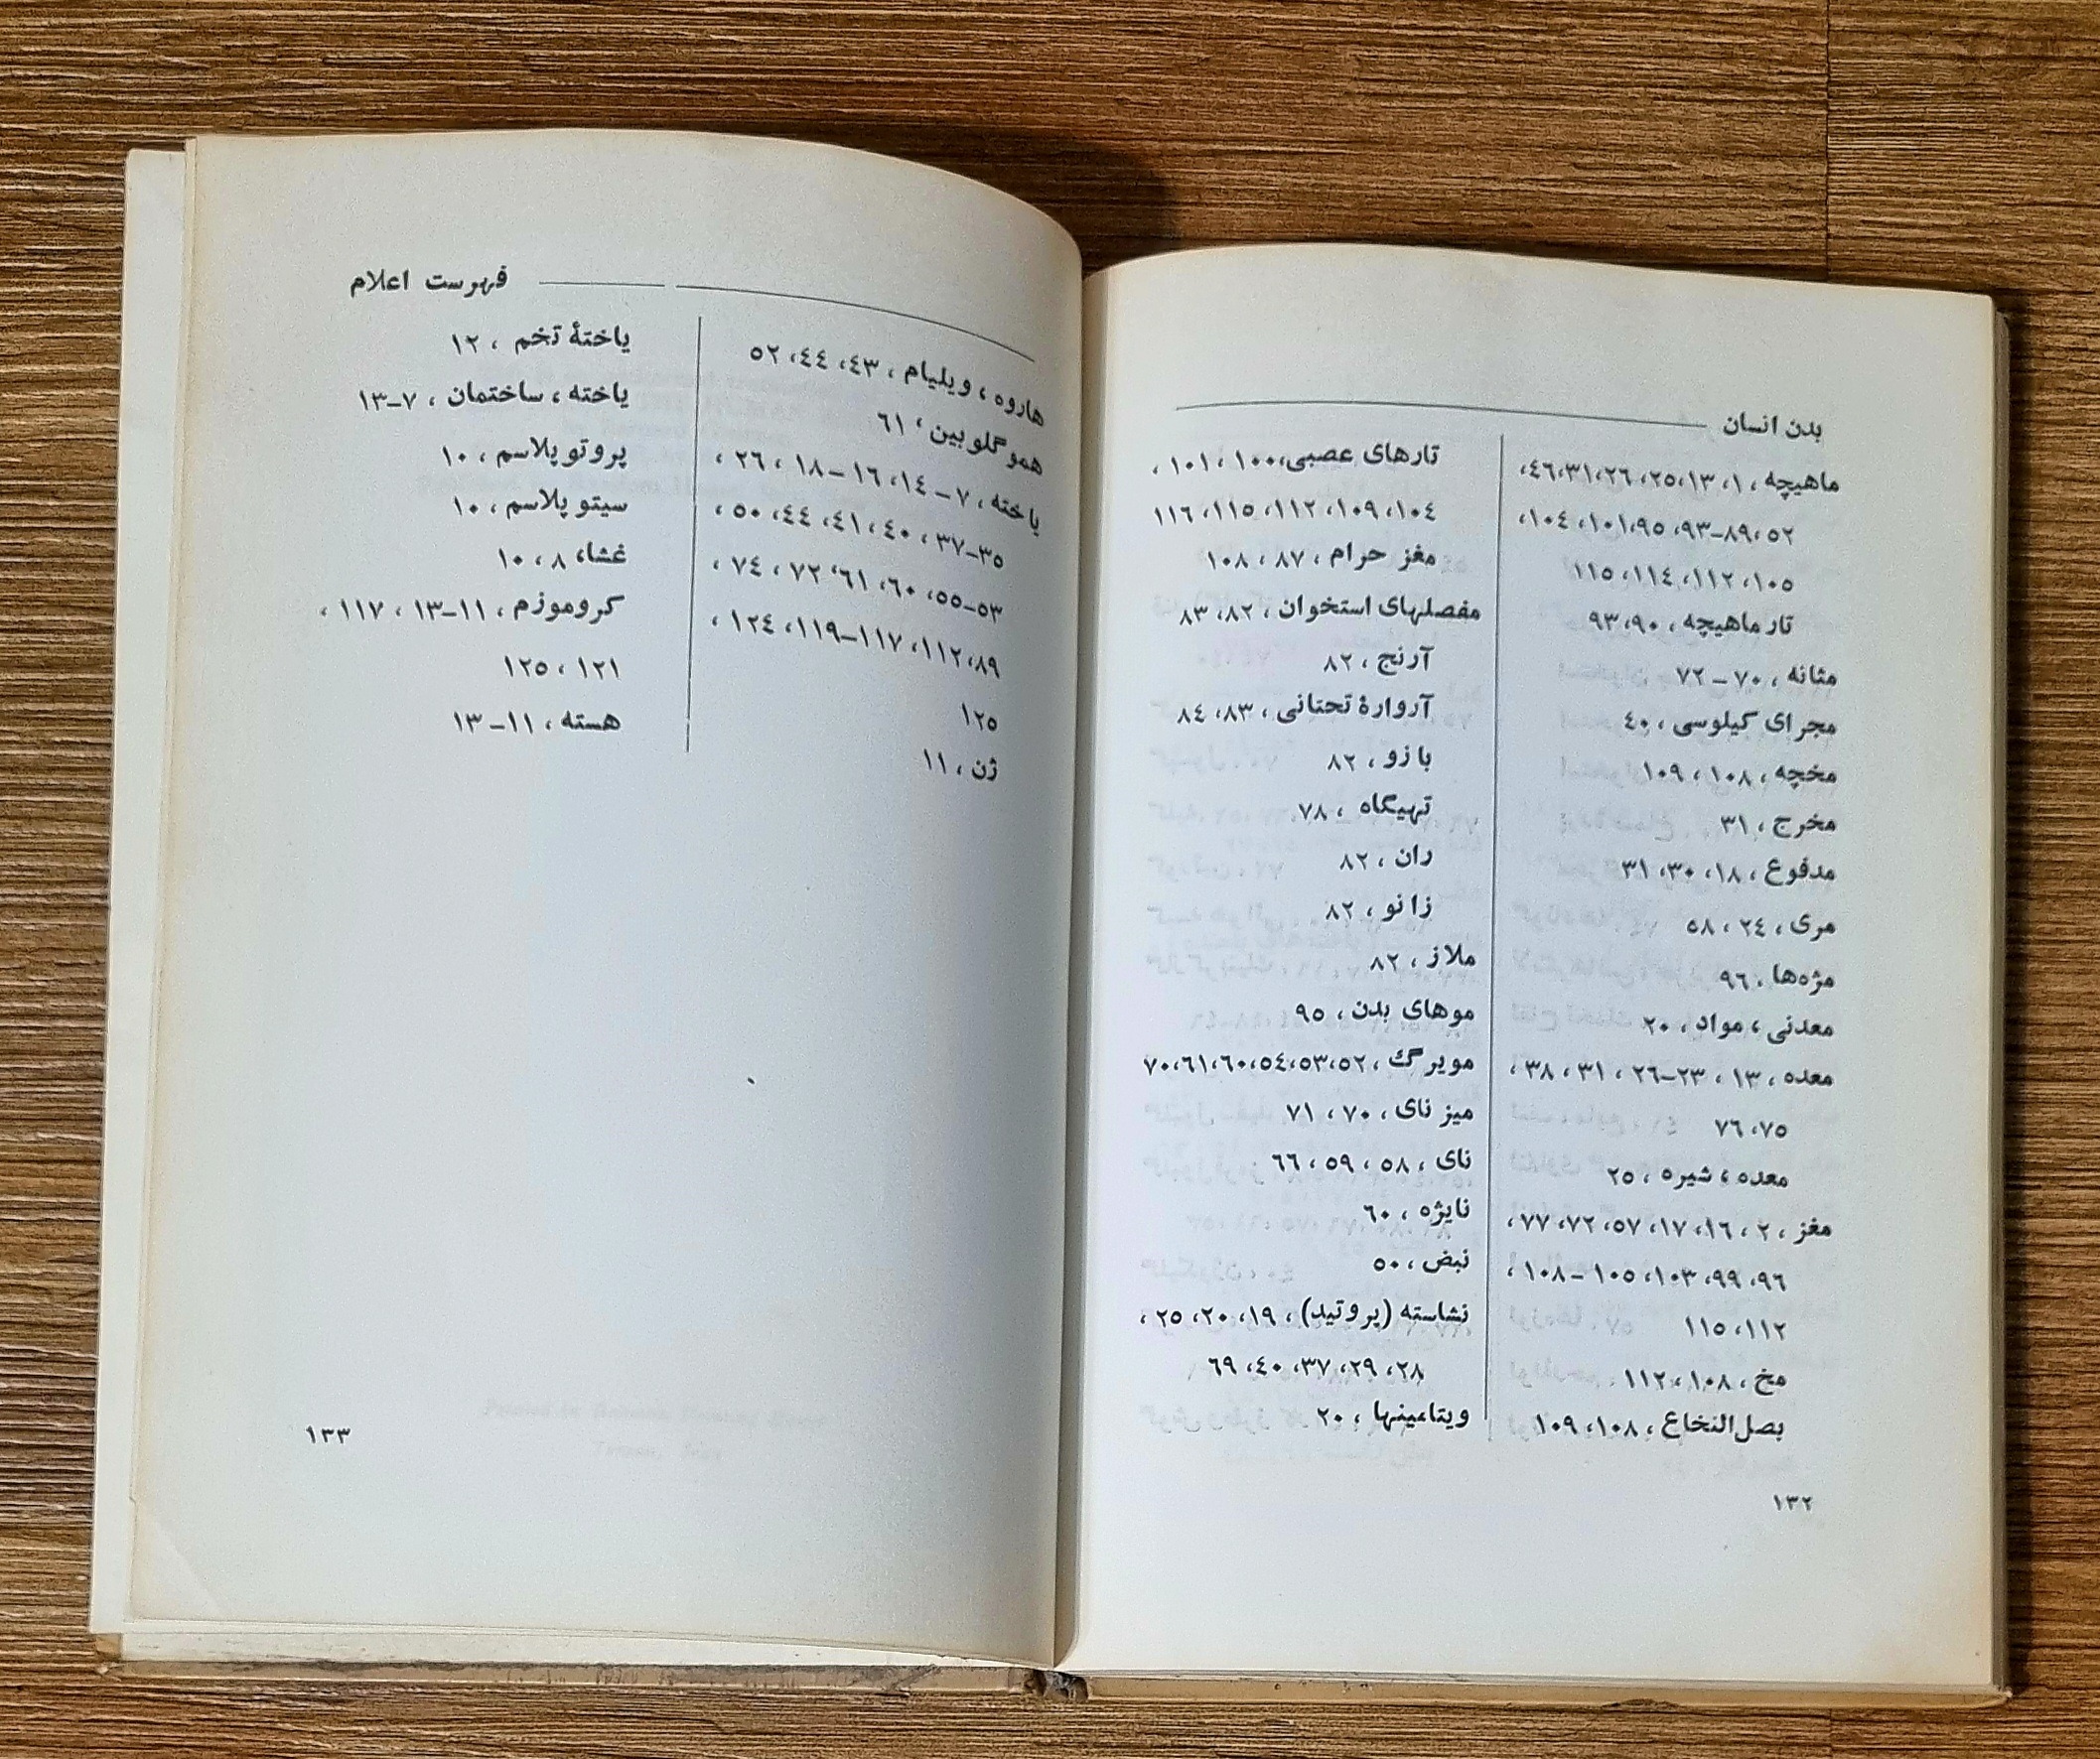 بدن انسان
ماهیچه ، ۱، ۱۳، ۲۵، ۲۶، ۳۱، ٤٦،
۵۲، ۸۹-۹۳، ۹۵، ۱۰۱، ۱۰٤،
۱۰۵، ۱۱۲، ۱۱٤، ۱۱۵
تار ماهیچه ، ۹۰، ۹۳
مثانه ، ۷۰ – ۷۲
مجرای کیلوسی ، ٤۰
مخچه ، ۱۰۸ ، ۱۰۹
مخرج ، ۳۱
مدفوع ، ۱۸، ۳۰، ۳۱
مری ، ۲٤ ، ۵۸
مژه‌ها ، ۹٦
معدنی ، مواد ، ۲۰
معده ، ۱۳ ، ۲۳-۲٦ ، ۳۱ ، ۳۸ ،
۷۵، ۷٦
معده ، شیره ، ۲۵
مغز ، ۲ ، ۱٦ ، ۱۷، ۵۷، ۷۲، ۷۷،
۹٦، ۹۹، ۱۰۳، ۱۰۵ – ۱۰۸ ،
۱۱۲، ۱۱۵
مخ ، ۱۰۸ ، ۱۱۲
بصل‌النخاع ، ۱۰۸، ۱۰۹
تارهای عصبی، ۱۰۰ ، ۱۰۱ ،
۱۰٤، ۱۰۹، ۱۱۲، ۱۱۵، ۱۱٦
مغز حرام ، ۸۷ ، ۱۰۸
مفصلهای استخوان ، ۸۲، ۸۳
آرنج ، ۸۲
آروارهٔ تحتانی ، ۸۳، ۸٤
بازو ، ۸۲
تهیگاه ، ۷۸
ران ، ۸۲
زانو ، ۸۲
ملاز ، ۸۲
موهای بدن ، ۹۵
مویرگ ، ۵۲، ۵۳، ۵٤، ٦۰، ٦۱، ۷۰
میز نای ، ۷۰ ، ۷۱
نای ، ۵۸ ، ۵۹ ، ٦٦
نایژه ، ٦۰
نبض ، ۵۰
نشاسته (پروتید) ، ۱۹، ۲۰، ۲۵ ،
۲۸، ۲۹، ۳۷، ٤۰، ٦۹
ویتامینها ، ۲۰
۱۳۲
فهرست اعلام
هاروه ، ویلیام ، ٤۳، ٤٤، ۵۲
هموگلوبین ، ٦۱
یاخته ، ۷ – ۱٤، ۱٦ – ۱۸ ، ۲٦ ،
۳۵-۳۷ ، ٤۰ ، ٤۱، ٤٤، ۵۰ ،
۵۳-۵۵، ٦۰، ٦۱، ۷۲ ، ۷٤ ،
۸۹، ۱۱۲، ۱۱۷-۱۱۹، ۱۲٤ ،
۱۲۵
ژن ، ۱۱
یاختهٔ تخم ، ۱۲
یاخته ، ساختمان ، ۷-۱۳
پروتوپلاسم ، ۱۰
سیتوپلاسم ، ۱۰
غشاء ۸ ، ۱۰
کروموزم ، ۱۱-۱۳ ، ۱۱۷ ،
۱۲۱ ، ۱۲۵
هسته ، ۱۱ – ۱۳
۱۳۳